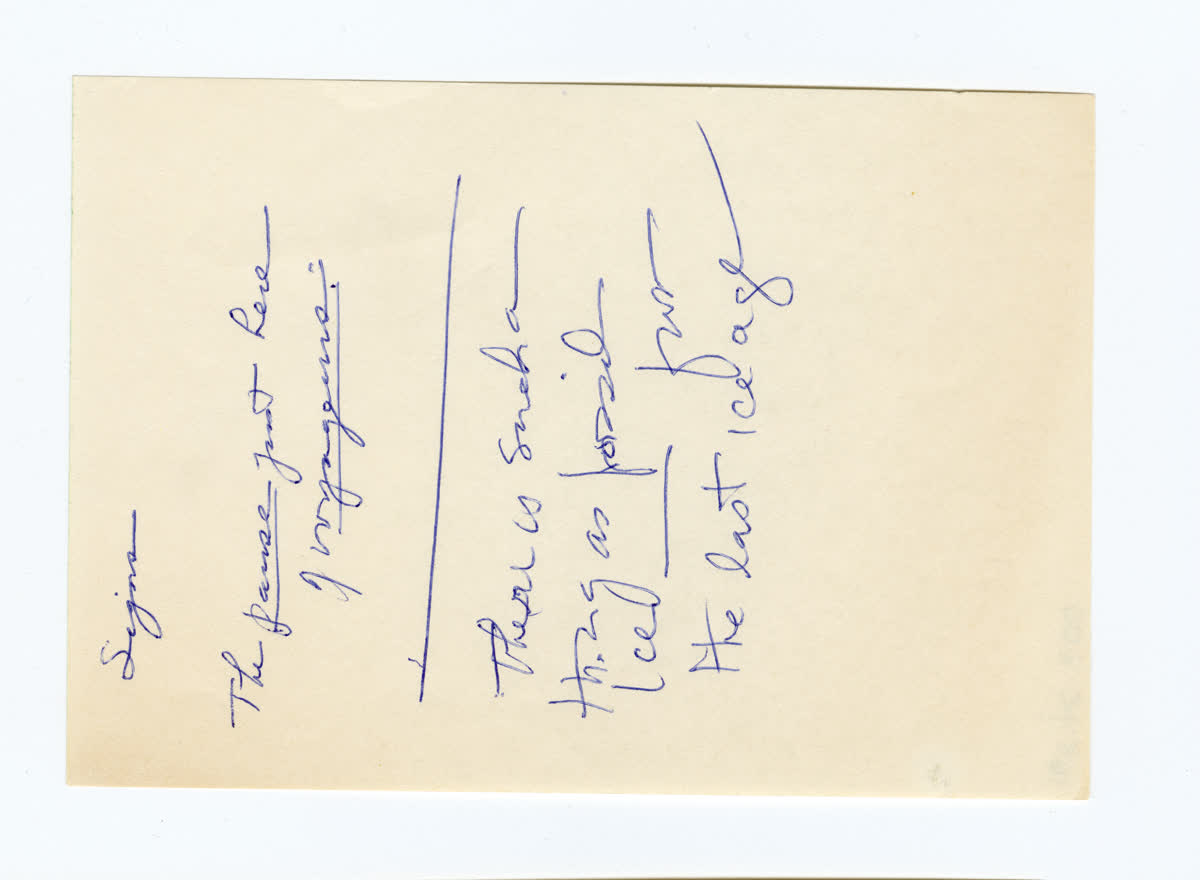 Signs
The pause just here
of voyageurs:
There is such a
thing as fossil
ice — from
the last ice age